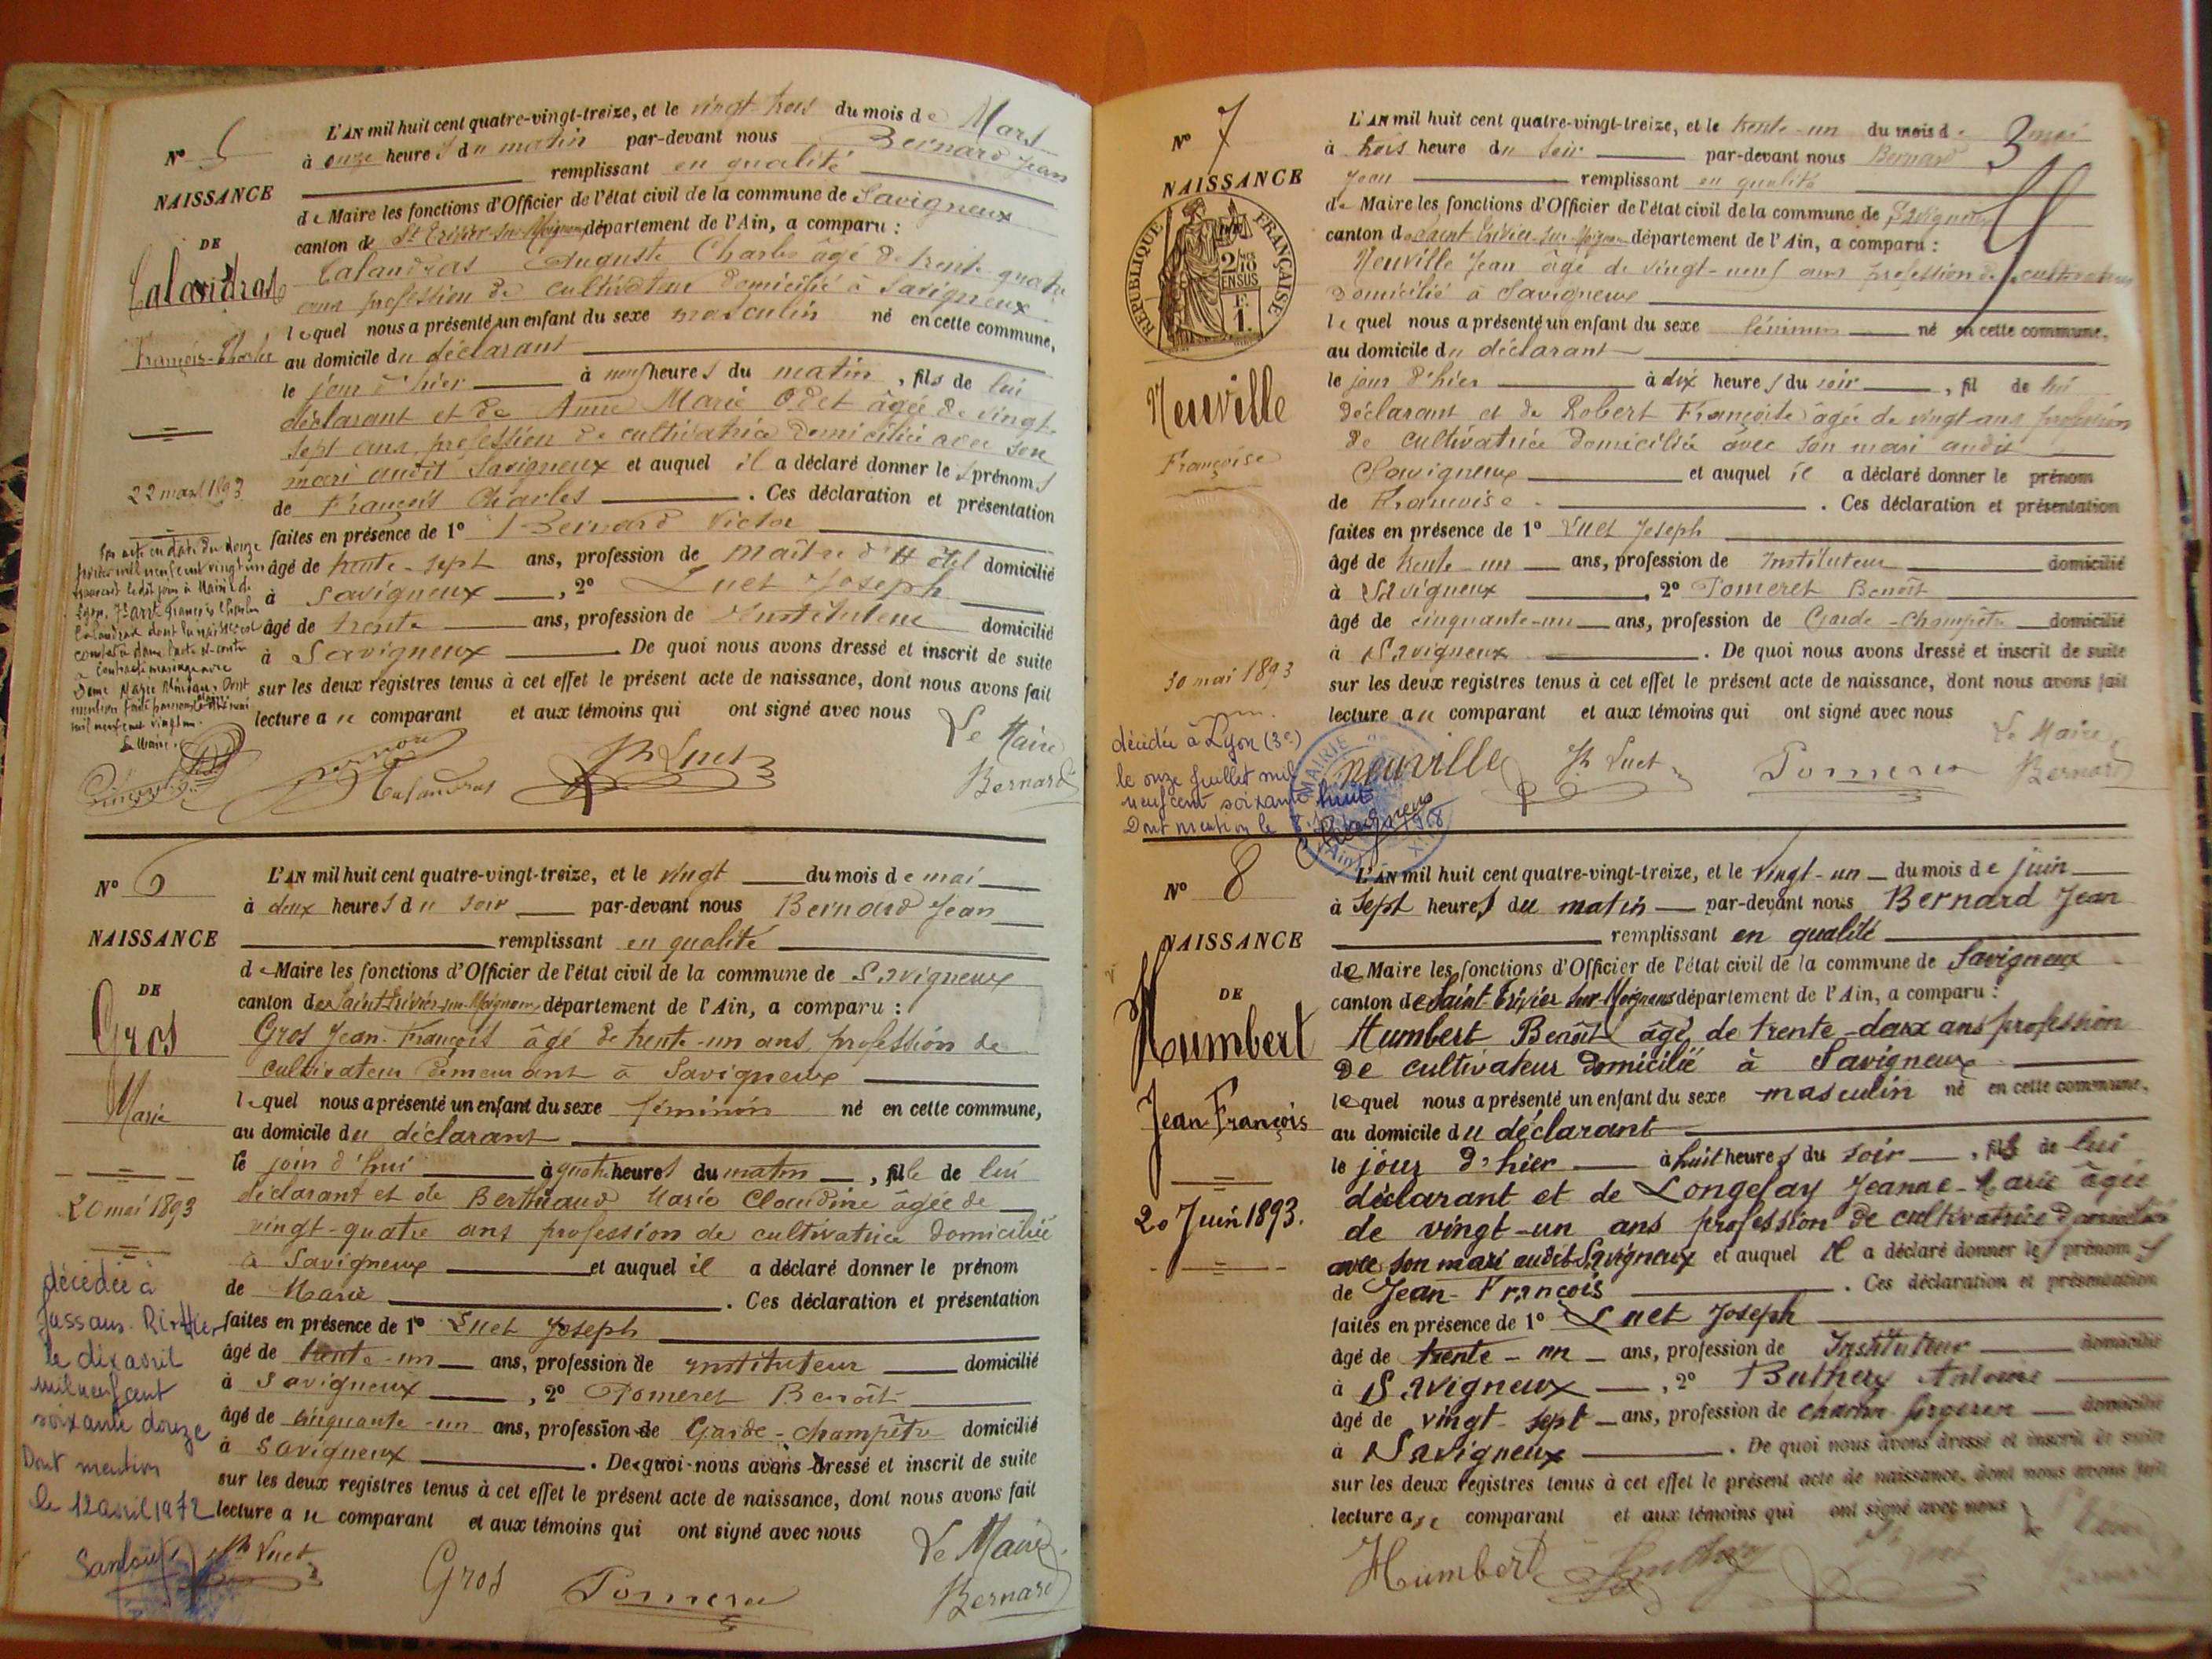 N° 5
NAISSANCE
DE
Calandras
François-Charles
22 mars 1893
L'AN mil huit cent quatre-vingt-treize, et le vingt-trois du mois de Mars
à onze heures du matin par-devant nous Bernard Jean
remplissant en qualité
de Maire les fonctions d'Officier de l'état civil de la commune de Savigneux
canton de St Trivier-sur-Moignans département de l'Ain, a comparu :
Calandras Auguste Charles âgé de trente-quatre
ans profession de cultivateur domicilié à Savigneux
lequel nous a présenté un enfant du sexe masculin né en cette commune,
au domicile du déclarant
le jour d'hier à neuf heures du matin, fils de lui
déclarant et de Anne Marie Odet âgée de vingt-
sept ans, profession de cultivatrice domiciliée avec son
mari audit Savigneux et auquel il a déclaré donner les prénoms
de François Charles . Ces déclaration et présentation
faites en présence de 1° Bernard Victor
âgé de trente-sept ans, profession de Maître d'Hôtel domicilié
à Savigneux, 2° Luet Joseph
âgé de trente ans, profession de Instituteur domicilié
à Savigneux . De quoi nous avons dressé et inscrit de suite
sur les deux registres tenus à cet effet le présent acte de naissance, dont nous avons fait
lecture au comparant et aux témoins qui ont signé avec nous
Par acte en date du douze
mil neuf cent vingt un
à Mairie de
Lyon, 7e arrt François Charles
Calandras dont la naissance est
constatée dans l'acte ci-contre
a contracté mariage avec
mil neuf cent vingt un.
Le Maire.
Calandras
Jh Luet
Le Maire
Bernard
N° 6
NAISSANCE
DE
Gros
Marie
20 mai 1893
L'AN mil huit cent quatre-vingt-treize, et le vingt du mois de mai
à deux heures du soir par-devant nous Bernard Jean
remplissant en qualité
de Maire les fonctions d'Officier de l'état civil de la commune de Savigneux
canton de Saint-Trivier-sur-Moignans département de l'Ain, a comparu :
Gros Jean-François âgé de trente-un ans, profession de
cultivateur demeurant à Savigneux
lequel nous a présenté un enfant du sexe féminin né en cette commune,
au domicile du déclarant
le jour d'hui à quatre heures du matin, fille de lui
déclarant et de Berthaud Marie Claudine âgée de
vingt-quatre ans profession de cultivatrice domiciliée
à Savigneux et auquel il a déclaré donner le prénom
de Marie . Ces déclaration et présentation
faites en présence de 1° Luet Joseph
âgé de trente-un ans, profession de instituteur domicilié
à Savigneux, 2° Pomeret Benoît
âgé de cinquante-un ans, profession de Garde-champêtre domicilié
à Savigneux . De quoi nous avons dressé et inscrit de suite
sur les deux registres tenus à cet effet le présent acte de naissance, dont nous avons fait
lecture au comparant et aux témoins qui ont signé avec nous
décédée à
Jassans-Riottier
le dix avril
mil neuf cent
soixante douze
Dont mention
le 12 avril 1972
Jh Luet
Gros
Pomeret
Le Maire
Bernard
N° 7
NAISSANCE
REPUBLIQUE FRANÇAISE
2/10
EN SUS
F.
1.
Neuville
Françoise
30 mai 1893
3
L'AN mil huit cent quatre-vingt-treize, et le trente-un du mois de mai
à trois heure du soir par-devant nous Bernard
Jean remplissant en qualité
de Maire les fonctions d'Officier de l'état civil de la commune de Savigneux
canton de Saint-Trivier-sur-Moignans département de l'Ain, a comparu :
Neuville Jean âgé de vingt-neuf ans profession de cultivateur
domicilié à Savigneux
lequel nous a présenté un enfant du sexe féminin né en cette commune,
au domicile du déclarant
le jour d'hier à dix heures du soir, fil de lui
déclarant et de Robert Françoise âgée de vingt-ans profession
de cultivatrice domiciliée avec son mari audit
Savigneux et auquel il a déclaré donner le prénom
de Françoise . Ces déclaration et présentation
faites en présence de 1° Luet Joseph
âgé de trente-un ans, profession de Instituteur domicilié
à Savigneux, 2° Pomeret Benoît
âgé de cinquante-un ans, profession de Garde-Champêtre domicilié
à Savigneux . De quoi nous avons dressé et inscrit de suite
sur les deux registres tenus à cet effet le présent acte de naissance, dont nous avons fait
lecture au comparant et aux témoins qui ont signé avec nous
décédée à Lyon (3e)
le onze Juillet mil
neuf cent soixante huit
Dont mention le
MAIRIE
Ain
neuville
Jh Luet
Pomeret
Le Maire,
Bernard
N° 8
NAISSANCE
DE
Humbert
Jean François
20 Juin 1893.
L'AN mil huit cent quatre-vingt-treize, et le vingt-un du mois de juin
à sept heures du matin par-devant nous Bernard Jean
remplissant en qualité
de Maire les fonctions d'Officier de l'état civil de la commune de Savigneux
canton de Saint-Trivier-sur-Moignans département de l'Ain, a comparu :
Humbert Benoît âgé de trente-deux ans profession
de cultivateur domicilié à Savigneux
lequel nous a présenté un enfant du sexe masculin né en cette commune,
au domicile du déclarant
le jour d'hier à huit heures du soir, fils de lui
déclarant et de Longefay Jeanne-Marie âgée
de vingt-un ans profession de cultivatrice domiciliée
avec son mari audit Savigneux et auquel il a déclaré donner les prénoms
de Jean-François . Ces déclaration et présentation
faites en présence de 1° Luet Joseph
âgé de trente-un ans, profession de Instituteur domicilié
à Savigneux, 2° Buthery Antoine
âgé de vingt-sept ans, profession de domicilié
à Savigneux . De quoi nous avons dressé et inscrit de suite
sur les deux registres tenus à cet effet le présent acte de naissance, dont nous avons fait
lecture au comparant et aux témoins qui ont signé avec nous
Humbert